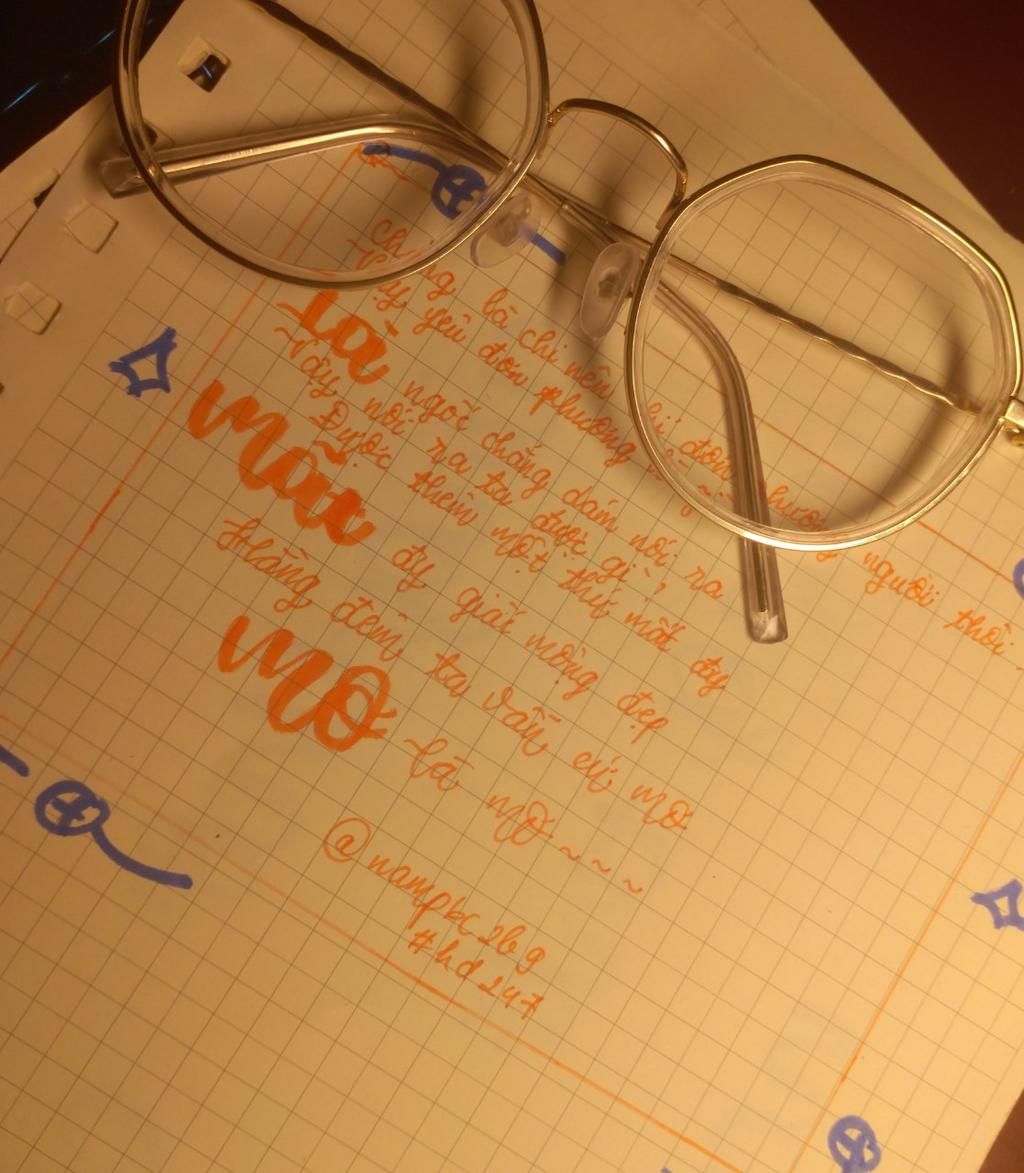 Chẳng là chi nên đơn phương người thôi..
Vậy yêu đơn phương
Là chẳng dám nói ra
Vậy nói ra ta được gì?
Được thêm một thứ mất đy
Mãi đy giấc mộng đẹp
Hằng đêm ta vẫn cứ mơ
Mơ là mơ ~ ~ ~
@nampkc2bg
#hd247